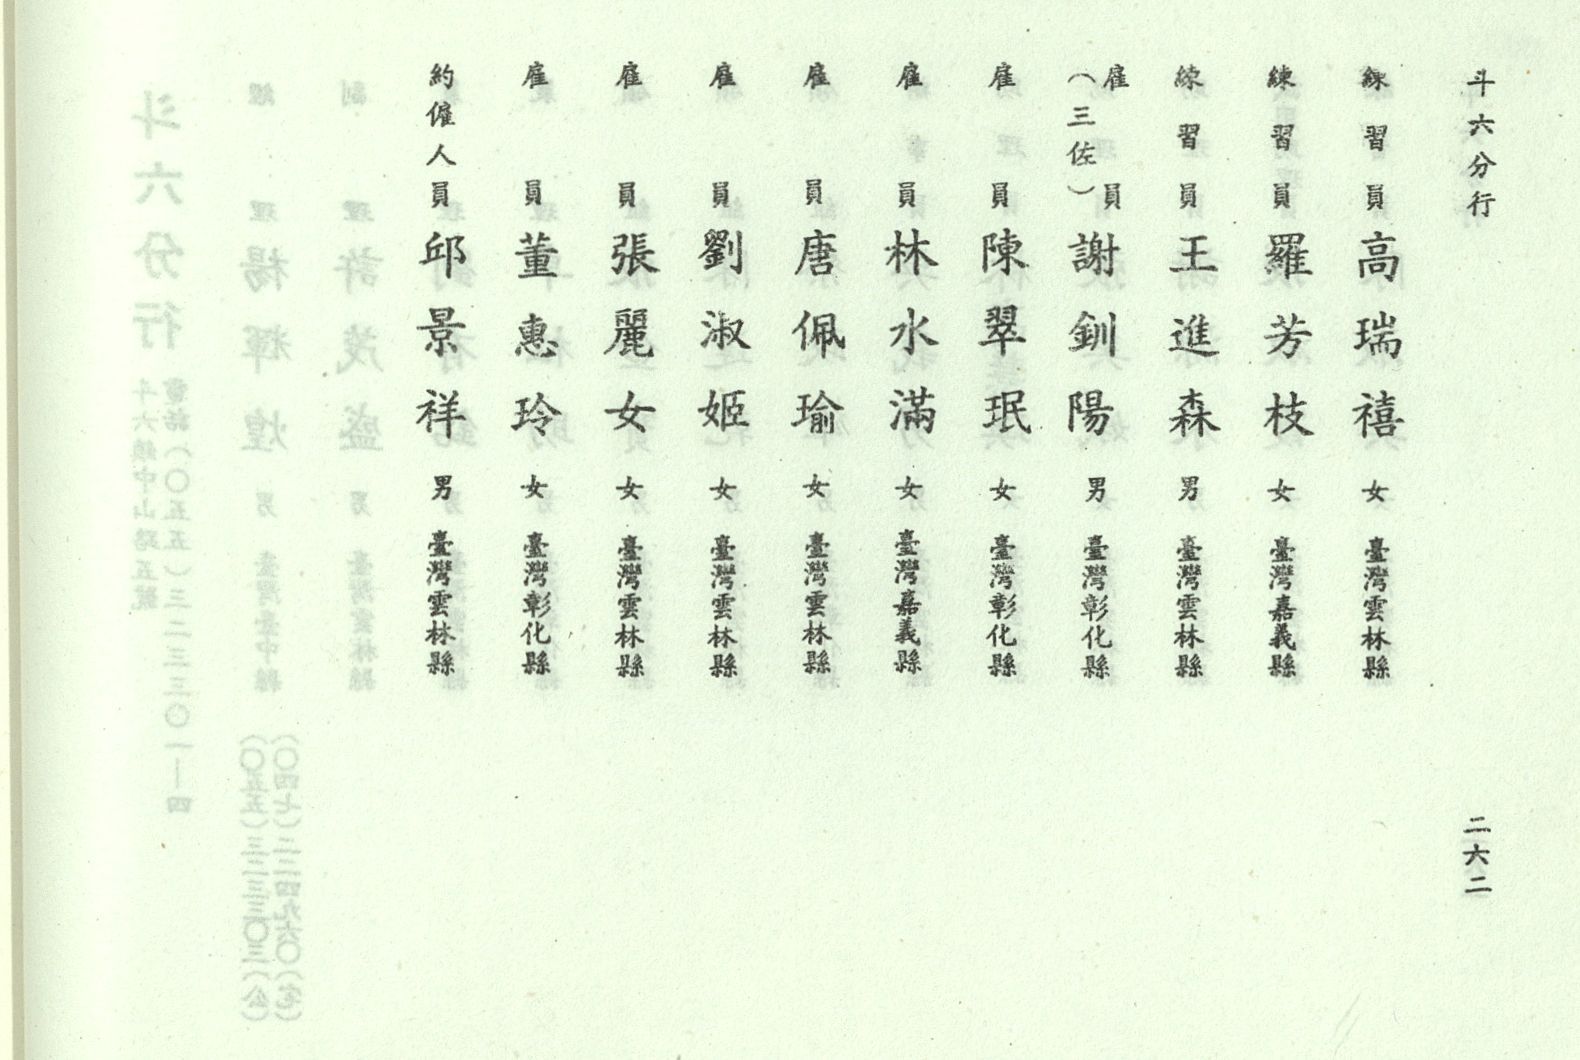 斗六分行 二六二
練習員 高瑞禧 女 臺灣雲林縣
練習員 羅芳枝 女 臺灣嘉義縣
練習員 王進森 男 臺灣雲林縣
雇員(三佐) 謝釧陽 男 臺灣彰化縣
雇員 陳翠珉 女 臺灣彰化縣
雇員 林水滿 女 臺灣嘉義縣
雇員 唐佩瑜 女 臺灣雲林縣
雇員 劉淑姬 女 臺灣雲林縣
雇員 張麗女 女 臺灣雲林縣
雇員 董惠玲 女 臺灣彰化縣
約僱人員 邱景祥 男 臺灣雲林縣